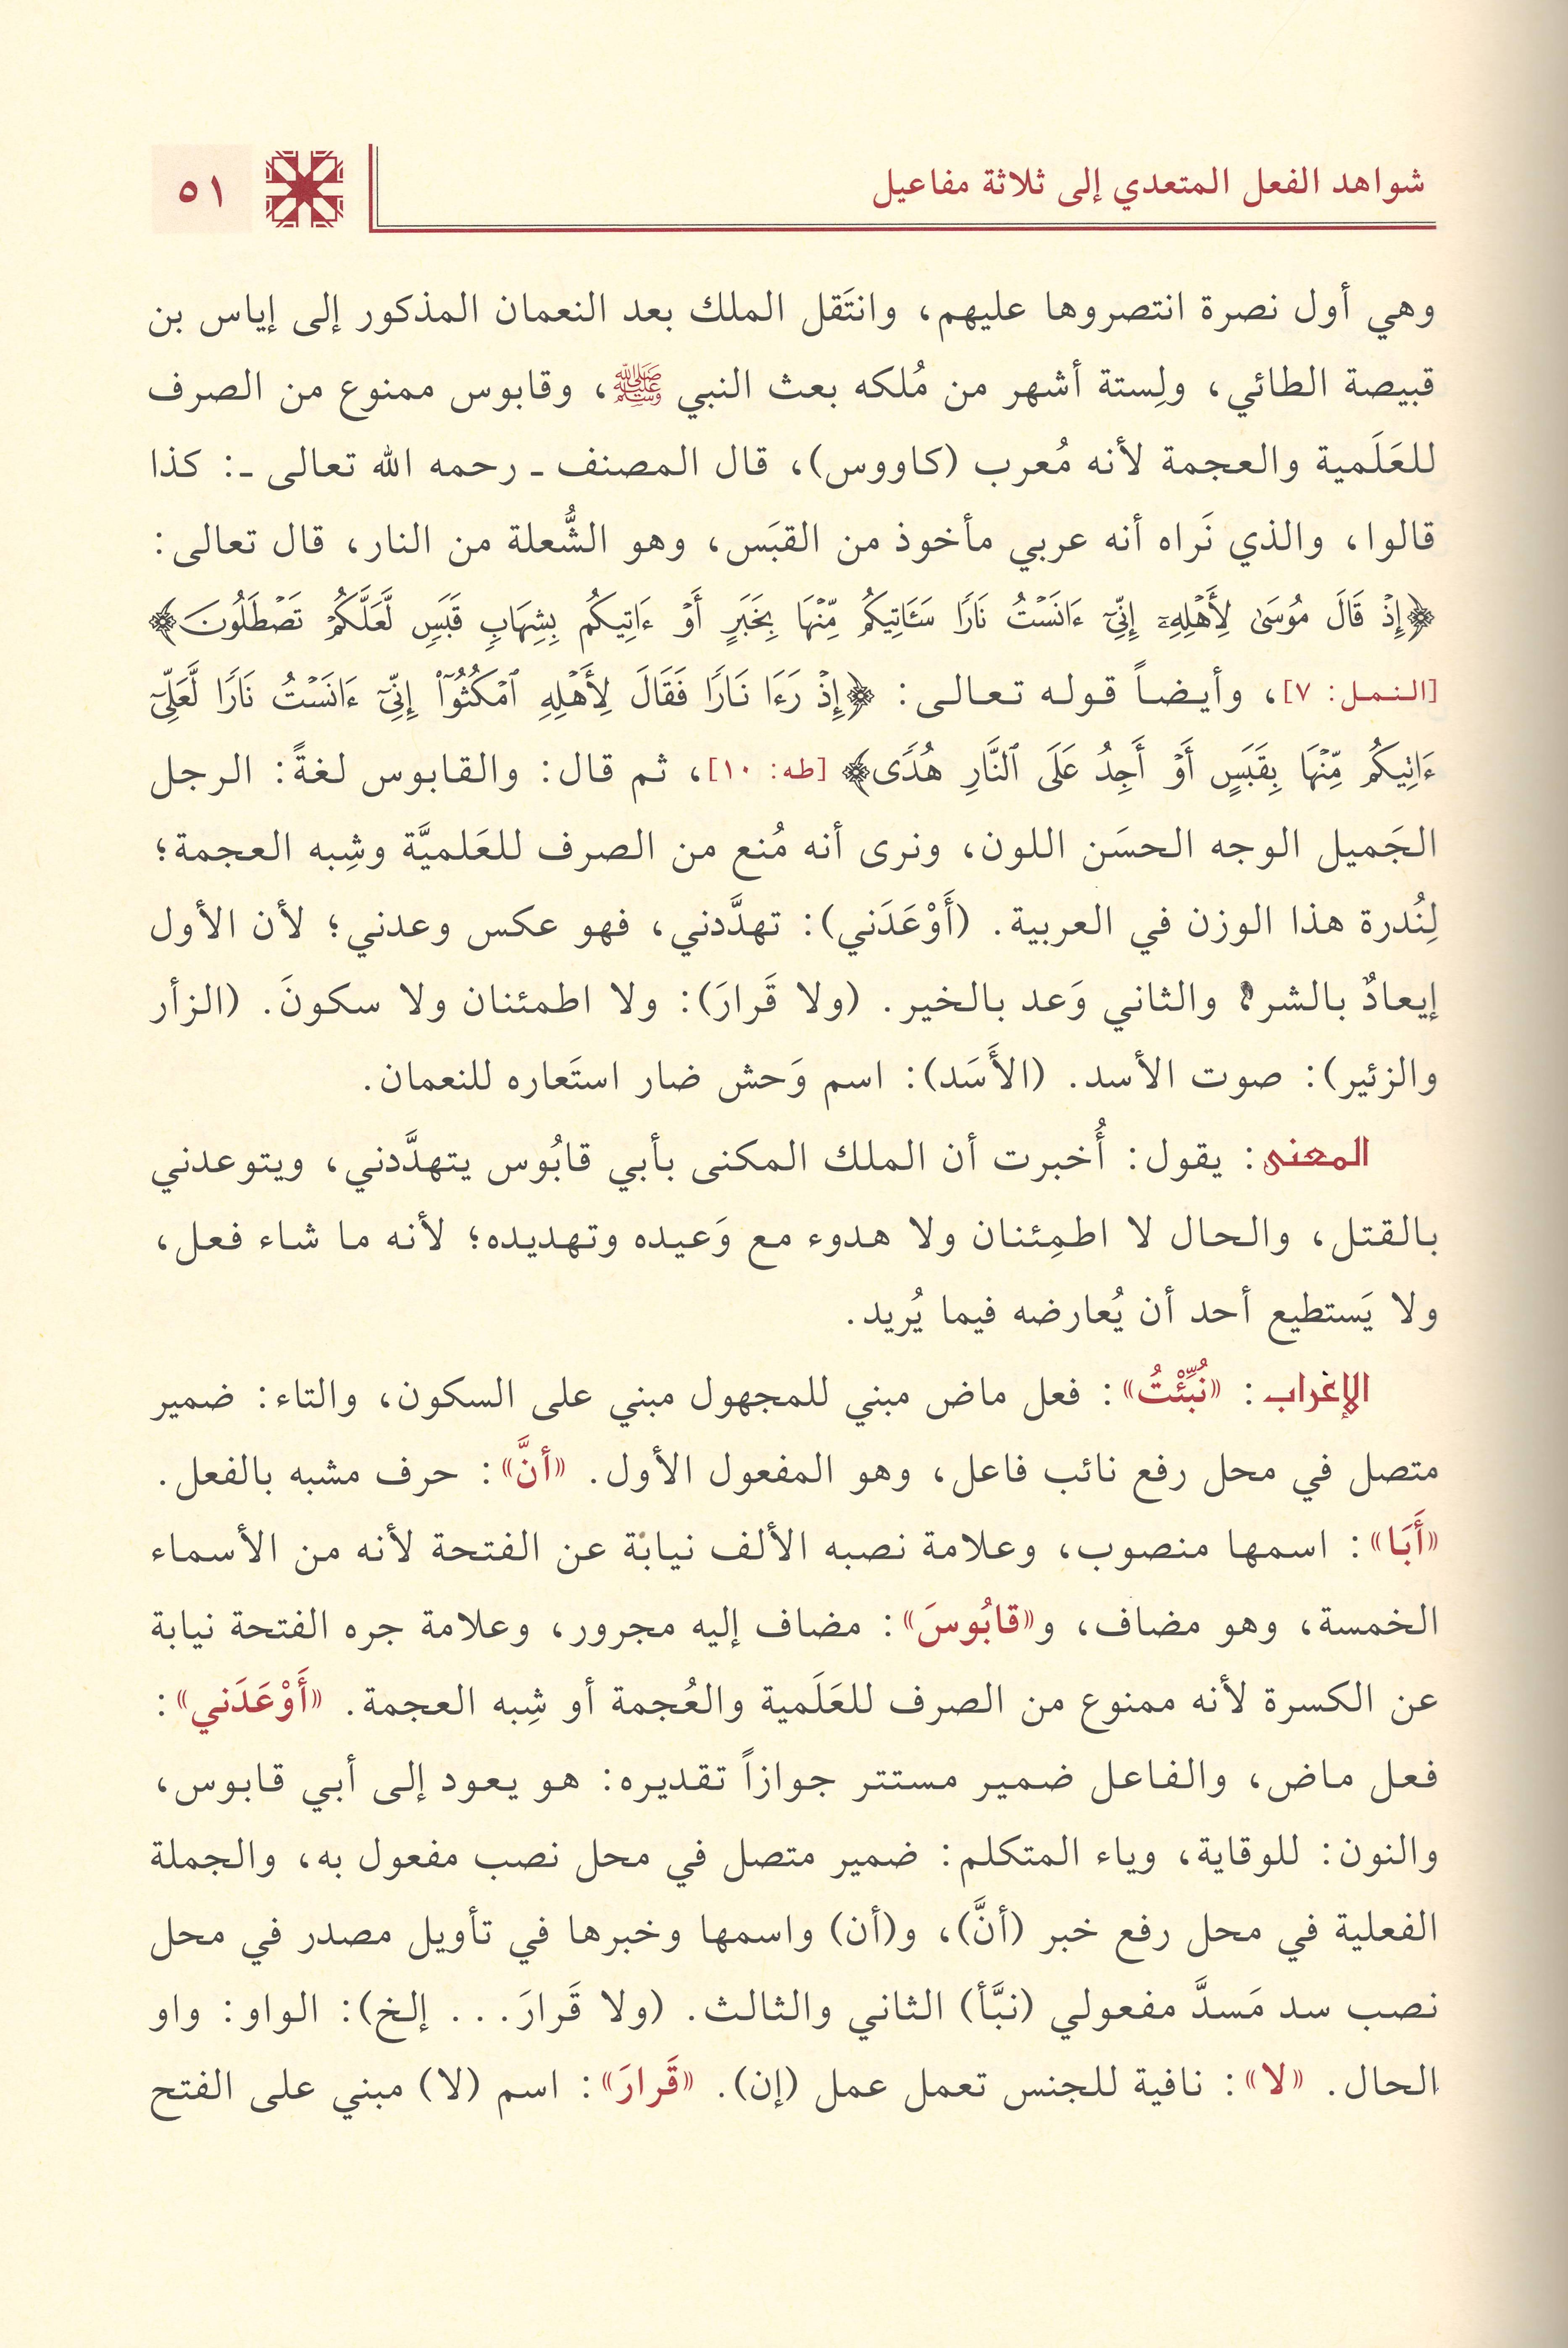 شواهد الفعل المتعدي إلى ثلاثة مفاعيل
٥١
وهي أول نصرة انتصروها عليهم، وانتَقل الملك بعد النعمان المذكور إلى إياس بن
قبيصة الطائي، ولِستة أشهر من مُلكه بعث النبي ﷺ، وقابوس ممنوع من الصرف
للعَلَمية والعجمة لأنه مُعرب (كاووس)، قال المصنف ـ رحمه الله تعالى ـ: كذا
قالوا، والذي نَراه أنه عربي مأخوذ من القبَس، وهو الشُّعلة من النار، قال تعالى:
﴿إِذْ قَالَ مُوسَىٰ لِأَهْلِهِۦٓ إِنِّىٓ ءَانَسْتُ نَارًا سَـَٔاتِيكُم مِّنْهَا بِخَبَرٍ أَوْ ءَاتِيكُم بِشِهَابِ قَبَسٍ لَّعَلَّكُمْ تَصْطَلُونَ﴾
[النمل: ٧]، وأيضاً قوله تعالى: ﴿إِذْ رَءَا نَارًا فَقَالَ لِأَهْلِهِ ٱمْكُثُوٓا۟ إِنِّىٓ ءَانَسْتُ نَارًا لَّعَلِّىٓ
ءَاتِيكُم مِّنْهَا بِقَبَسٍ أَوْ أَجِدُ عَلَى ٱلنَّارِ هُدًى﴾ [طه: ١٠]، ثم قال: والقابوس لغةً: الرجل
الجَميل الوجه الحسَن اللون، ونرى أنه مُنع من الصرف للعَلميَّة وشِبه العجمة؛
لِنُدرة هذا الوزن في العربية. (أَوْعَدَني): تهدَّدني، فهو عكس وعدني؛ لأن الأول
إيعادٌ بالشر؟ والثاني وَعد بالخير. (ولا قَرارَ): ولا اطمئنان ولا سكونَ. (الزأر
والزئير): صوت الأسد. (الأَسَد): اسم وَحش ضار استَعاره للنعمان.
المعنى: يقول: أُخبرت أن الملك المكنى بأبي قابُوس يتهدَّدني، ويتوعدني
بالقتل، والحال لا اطمِئنان ولا هدوء مع وَعيده وتهديده؛ لأنه ما شاء فعل،
ولا يَستطيع أحد أن يُعارضه فيما يُريد.
الإغراب: «نُبِّئْتُ»: فعل ماض مبني للمجهول مبني على السكون، والتاء: ضمير
متصل في محل رفع نائب فاعل، وهو المفعول الأول. «أنَّ»: حرف مشبه بالفعل.
«أَبَا»: اسمها منصوب، وعلامة نصبه الألف نيابة عن الفتحة لأنه من الأسماء
الخمسة، وهو مضاف، و«قابُوسَ»: مضاف إليه مجرور، وعلامة جره الفتحة نيابة
عن الكسرة لأنه ممنوع من الصرف للعَلَمية والعُجمة أو شِبه العجمة. «أَوْعَدَني»:
فعل ماض، والفاعل ضمير مستتر جوازاً تقديره: هو يعود إلى أبي قابوس،
والنون: للوقاية، وياء المتكلم: ضمير متصل في محل نصب مفعول به، والجملة
الفعلية في محل رفع خبر (أنَّ)، و(أن) واسمها وخبرها في تأويل مصدر في محل
نصب سد مَسدَّ مفعولي (نبَّأ) الثاني والثالث. (ولا قَرارَ... إلخ): الواو: واو
الحال. «لا»: نافية للجنس تعمل عمل (إن). «قَرارَ»: اسم (لا) مبني على الفتح